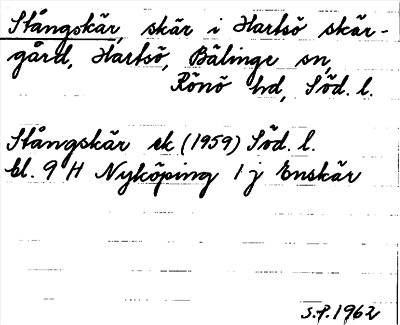 Stångskär, skär i Hartsö skär-
gård, Hartsö, Bälinge sn,
Rönö hd, Söd. l.
Stångskär sk (1959) Söd. l.
bl. 9 H Nyköping 1 j Enskär
S.P. 1962